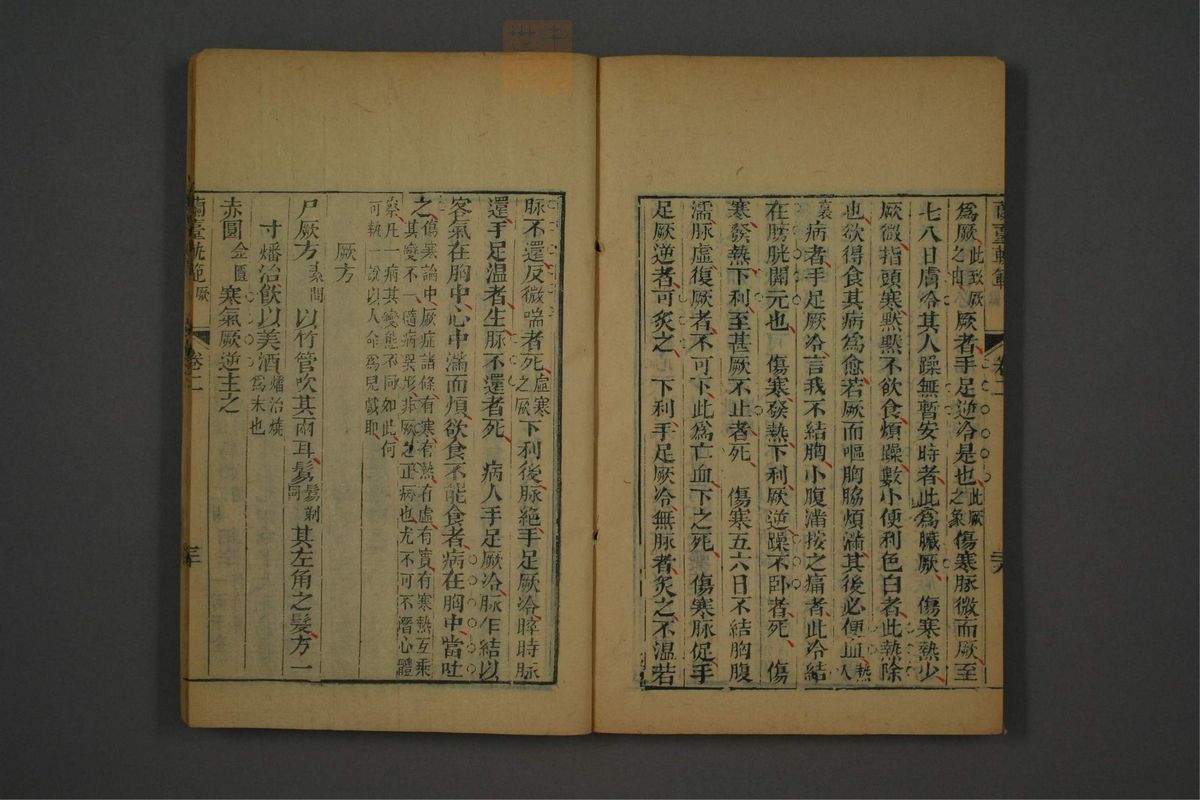 蘭臺軌範 卷二
爲厥此致厥之由厥者手足逆冷是也此厥之象傷寒脉微而厥至
七八日膚冷其人躁無暫安時者此爲臟厥 傷寒熱少
厥微指頭寒黙黙不飲食煩躁數小便利色白者此熱除
也欲得食其病爲愈若厥而嘔胸脇煩滿其後必便血熱入
裏 病者手足厥冷言我不結胸小腹滿按之痛者此冷結
在膀胱關元也 傷寒發熱下利厥逆躁不卧者死 傷
寒發熱下利至甚厥不止者死 傷寒五六日不結胸腹
濡脉虛復厥者不可下此爲亡血下之死 傷寒脉促手
足厥逆者可炙之 下利手足厥冷無脉者炙之不溫若
脉不還反微喘者死虛寒之厥下利後脉絶手足厥冷晬時脉
還手足溫者生脉不還者死 病人手足厥冷脉乍結以
客氣在胸中心中滿而煩欲食不能食者病在胸中當吐
之傷寒論中厥症諸條有寒有熱有虛有實有寒熱互乘
其變不一隨病異形非厥之正病也尤不可不潛心體
察凡一病其變態不同如此何
可執一說以人命爲兒戲耶
厥方
尸厥方素問 以竹管吹其兩耳鬄鬄剃同其左角之髮方一
寸燔治飮以美酒燔治燒爲末也
赤圓金匱 寒氣厥逆主之
蘭臺軌範 厥 卷二